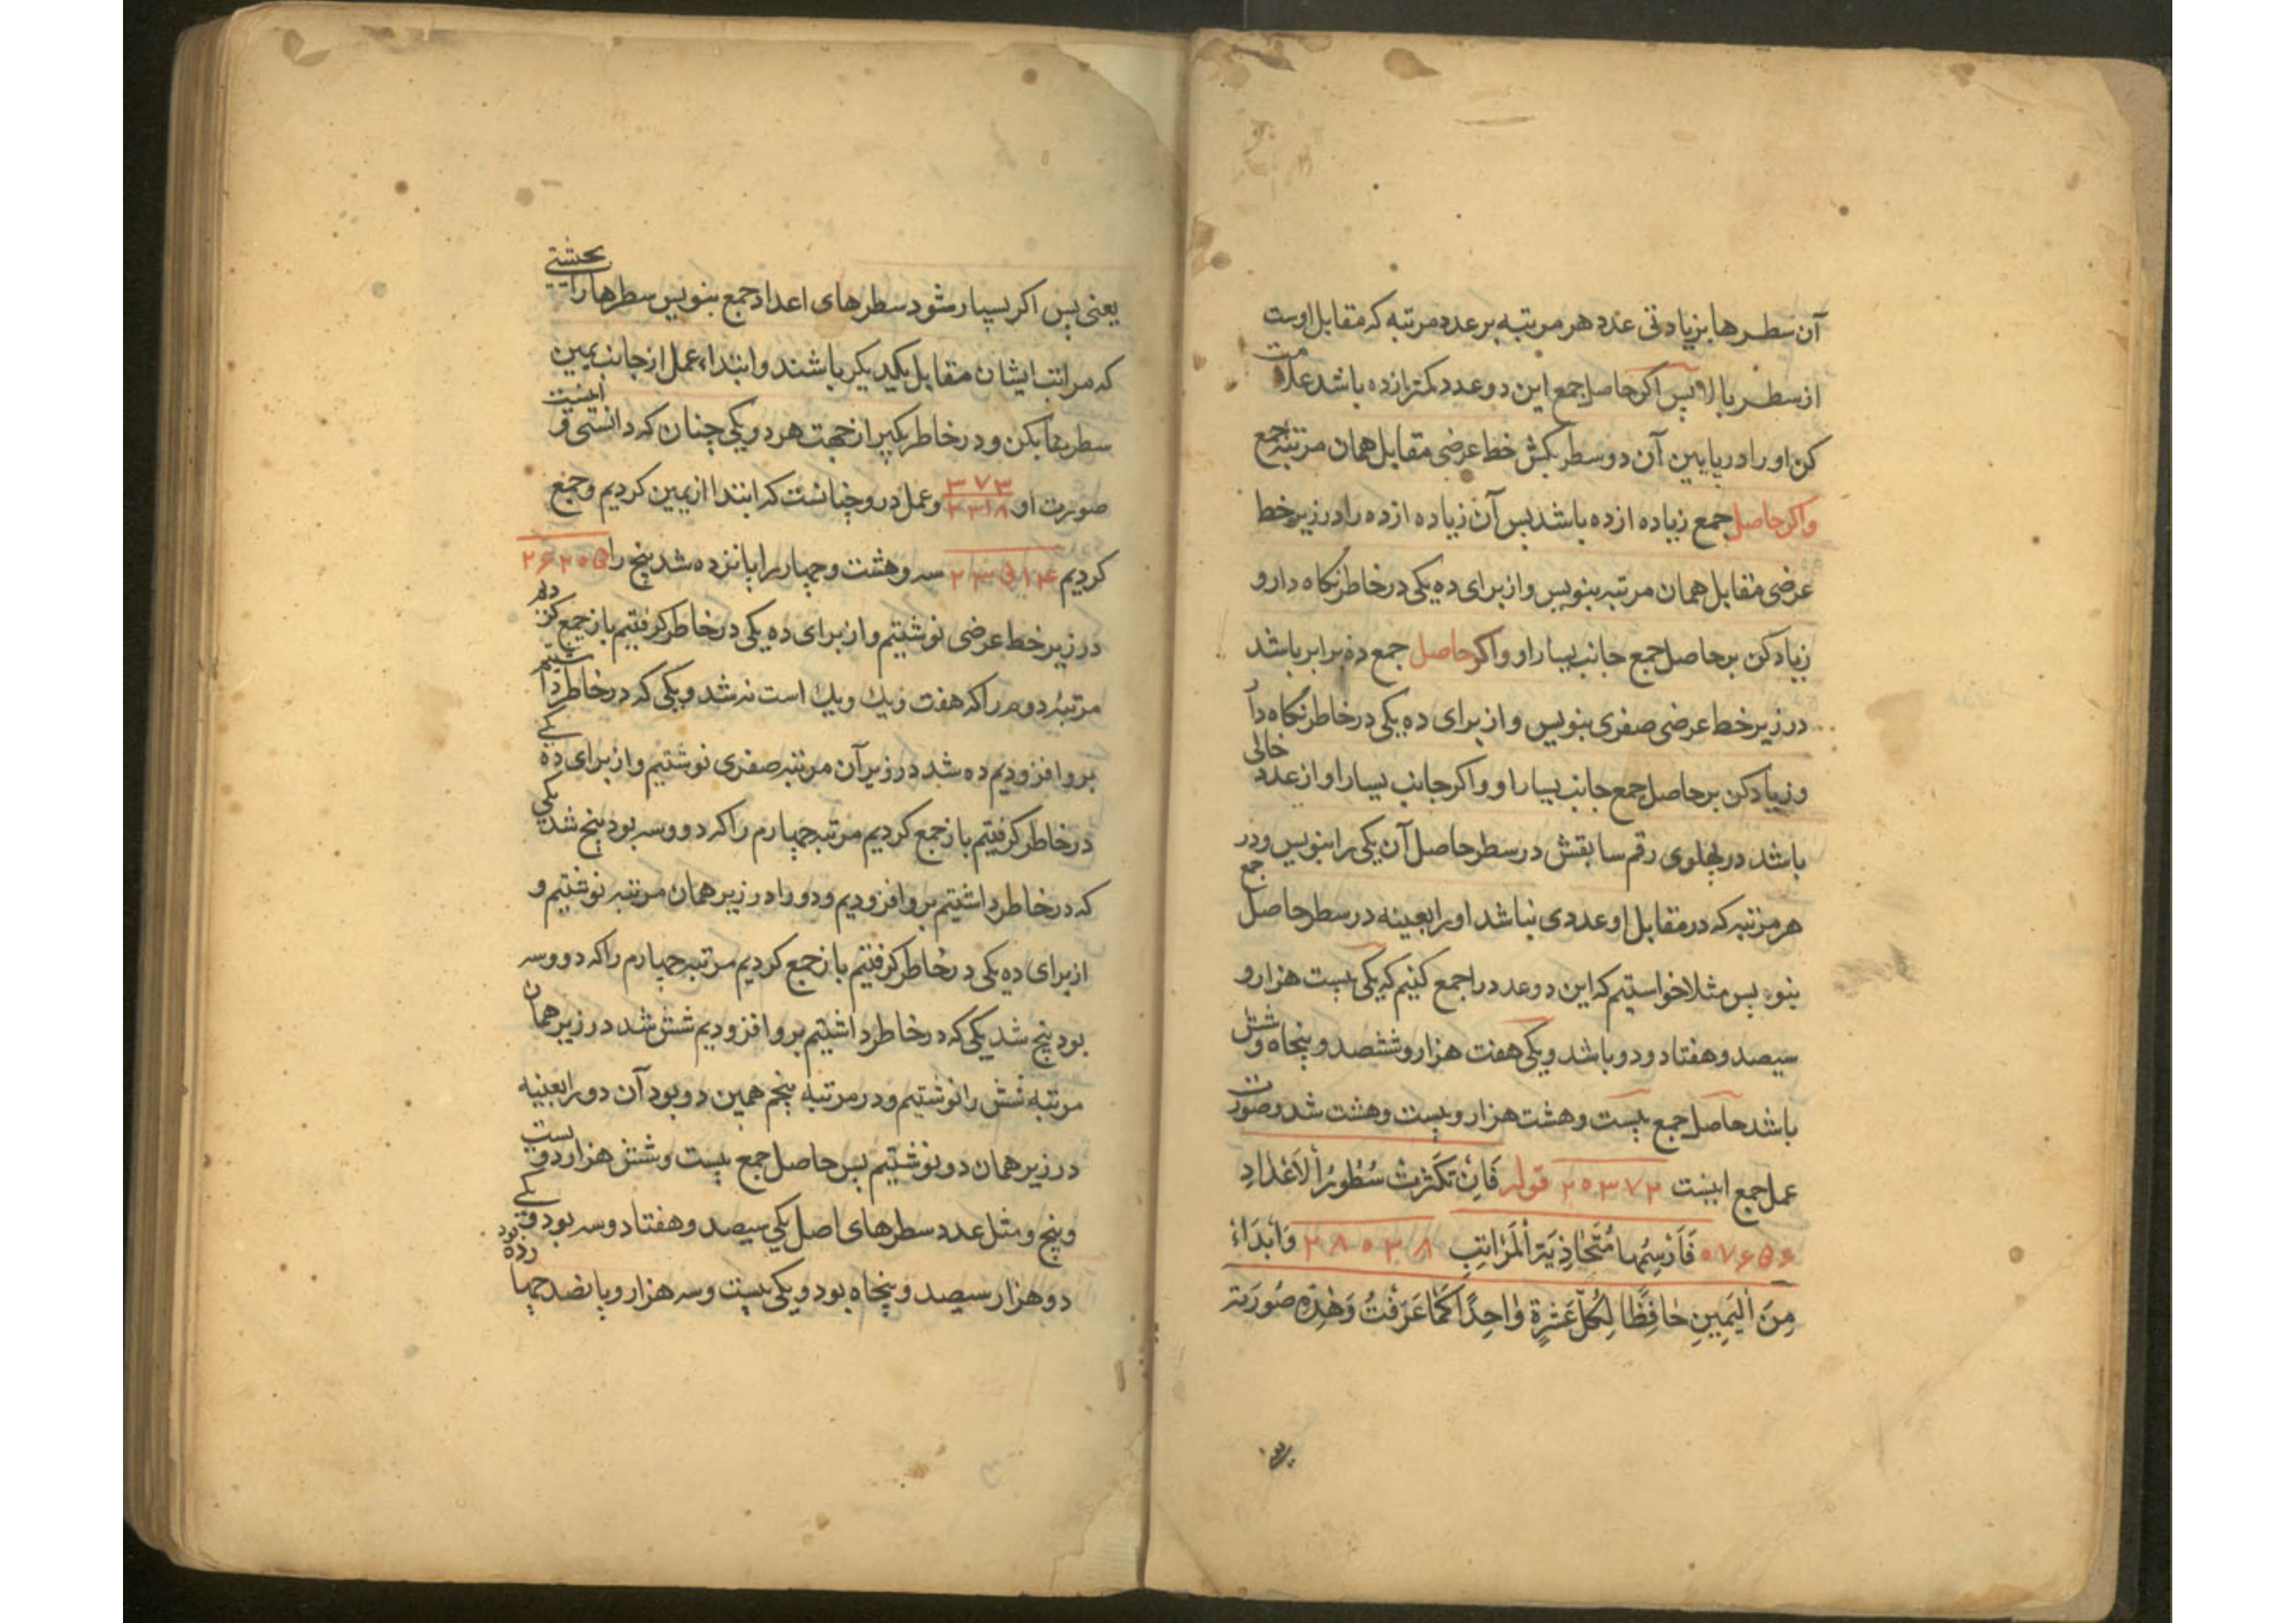 آن سطرها بزیادتی عدد هر مرتبه بر عدد مرتبه که مقابل اوست
از سطر بالا پس اکر حاصل جمع این دو عدد کمتر از ده باشد علامت
کن او را در پایین آن دو سطر بکش خط عرضی مقابل همان مرتبه جمع
واکر حاصل جمع زیاده از ده باشد پس آن زیاده از ده را در زیر خط
عرضی مقابل همان مرتبه بنویس و از برای ده یکی در خاطر نکاه دار و
زیاد کن بر حاصل جمع جانب یسار او واکر حاصل جمع ده برابر باشد
در زیر خط عرضی صفری بنویس و از برای ده یکی در خاطر نکاه دار
و زیاد کن بر حاصل جمع جانب یسار او واکر جانب یسار او از عدد خالی
باشد در پهلوی رقم سابقش در سطر حاصل آن یکی را بنویس و در
هر مرتبه که در مقابل او عددی نباشد او را بعینه در سطر حاصل جمع
بنویس مثلا خواستیم که این دو عدد را جمع کنیم که یکی بیست هزار و
سیصد و هفتاد و دو باشد و یکی هفت هزار و ششصد و پنجاه و شش
باشد حاصل جمع بیست و هشت هزار و بیست و هشت شد و صورت
عمل جمع اینست ۲۰۳۷۲ قوله فَاِنْ تَکَثَّرَتْ سُطُورُ اْلاَعْدَادِ
۰۷۶۵۶ فَاَرْسِمْها مُتَحَاذِیَةَ اْلمَرَاتِبِ ۲۸۰۲۸ وَاْبدَاءْ
مِنَ اْلیَمِینِ حَافِظًا لِکُلِّ عَشْرَةٍ وَاحِدًا کَمَا عَرَفْتَ وَهٰذِهِ صُورَتُهُ
یعنی پس اکر بسیار شود سطرهای اعداد جمع بنویس سطرها را بحیثیتی
که مراتب ایشان مقابل یکدیکر باشند و ابتداء عمل از جانب یمین
سطرها بکن و در خاطر بکیر از جهت هر ده یکی چنان که دانستی و اینست
صورت او ۳۷۳ ۲۳۱۸ و عمل درو چنانست که ابتدا از یمین کردیم و جمع
کردیم ۲۳۵۱۴ سه و هشت و چهار را پانزده شد پنج را ۲۶۲۰۵
در زیر خط عرضی نوشتیم و از برای ده یکی در خاطر کرفتیم باز جمع کردیم
مرتبهٔ دوم را که هفت و یک و یک است نه شد و یکی که در خاطر داشتیم
برو افزودیم ده شد در زیر آن مرتبه صفری نوشتیم و از برای ده یکی
در خاطر کرفتیم باز جمع کردیم مرتبه چهارم را که دو و سه بود پنج شد یکی
که در خاطر داشتیم برو افزودیم و دو را در زیر همان مرتبه نوشتیم و
از برای ده یکی در خاطر کرفتیم باز جمع کردیم مرتبه چهارم را که دو و سه
بود پنج شد یکی که در خاطر داشتیم برو افزودیم شش شد در زیر همان
مرتبه شش را نوشتیم و در مرتبه پنجم همین دو بود آن دو را بعینه
در زیر همان دو نوشتیم پس حاصل جمع بیست و شش هزار دویست
و پنج و مثل عدد سطرهای اصل یکی سیصد و هفتاد و سه بود و یکی
دو هزار سیصد و پنجاه بود و یکی بیست و سه هزار و پانصد چهارده بود